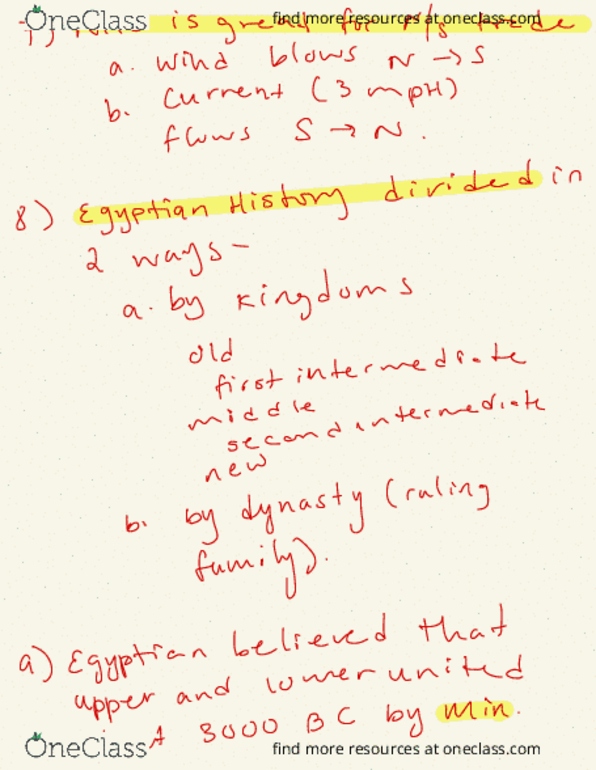 OneClass find more resources at oneclass.com
7) is great for trade
a. wind blows N → S
b. Current (3 mpH)
flows S → N.
8) Egyptian History divided in
2 ways -
a. by kingdoms
old
first intermediate
middle
second intermediate
new
b. by dynasty (ruling
family).
9) Egyptian believed that
upper and lower united
3000 BC by Min.
OneClass find more resources at oneclass.com